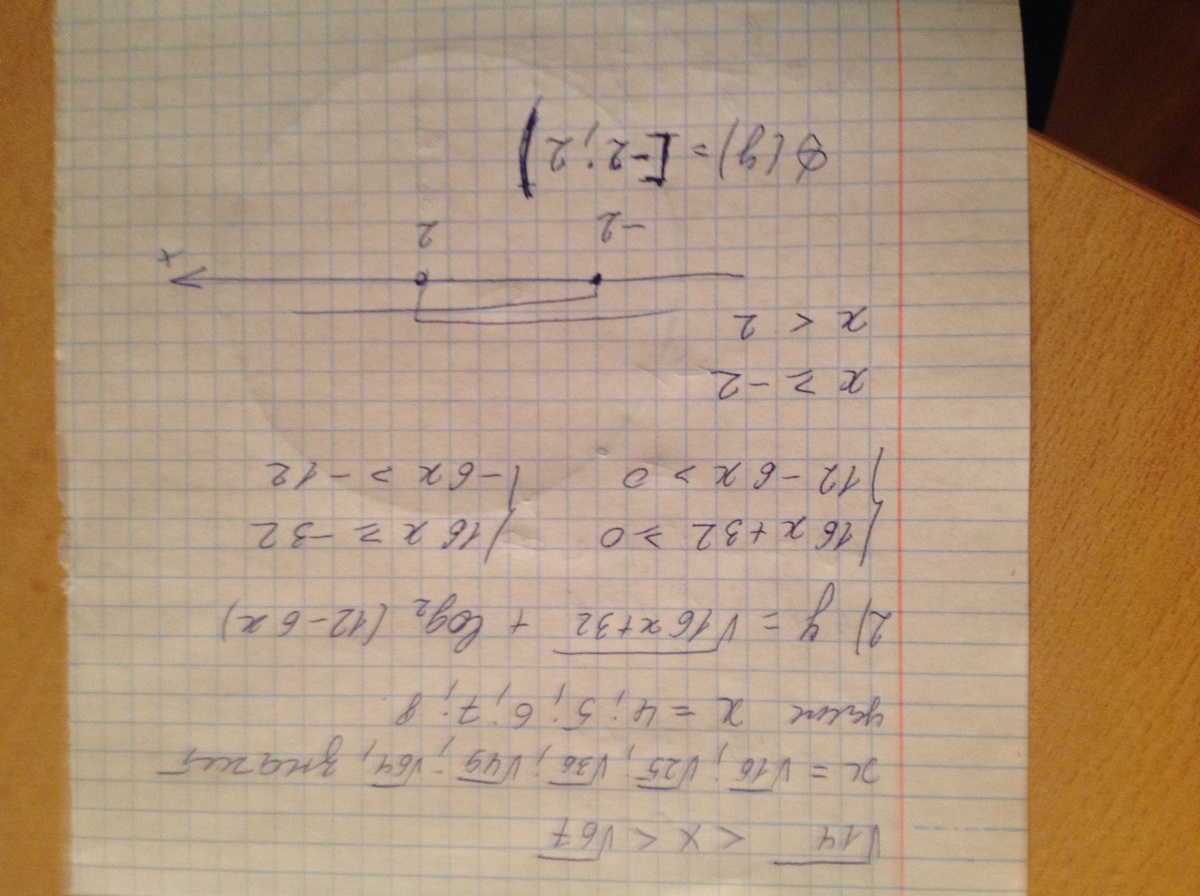 √14 < x < √67
x = √16; √25; √36; √49; √64, значит
целых x = 4; 5; 6; 7; 8.
2) y = √16x+32 + log₂ (12-6x)
{16x+32 ≥ 0 {16x ≥ -32
{12-6x > 0 {-6x > -12
x ≥ -2
x < 2
-2 2 x
D(y) = [-2; 2)